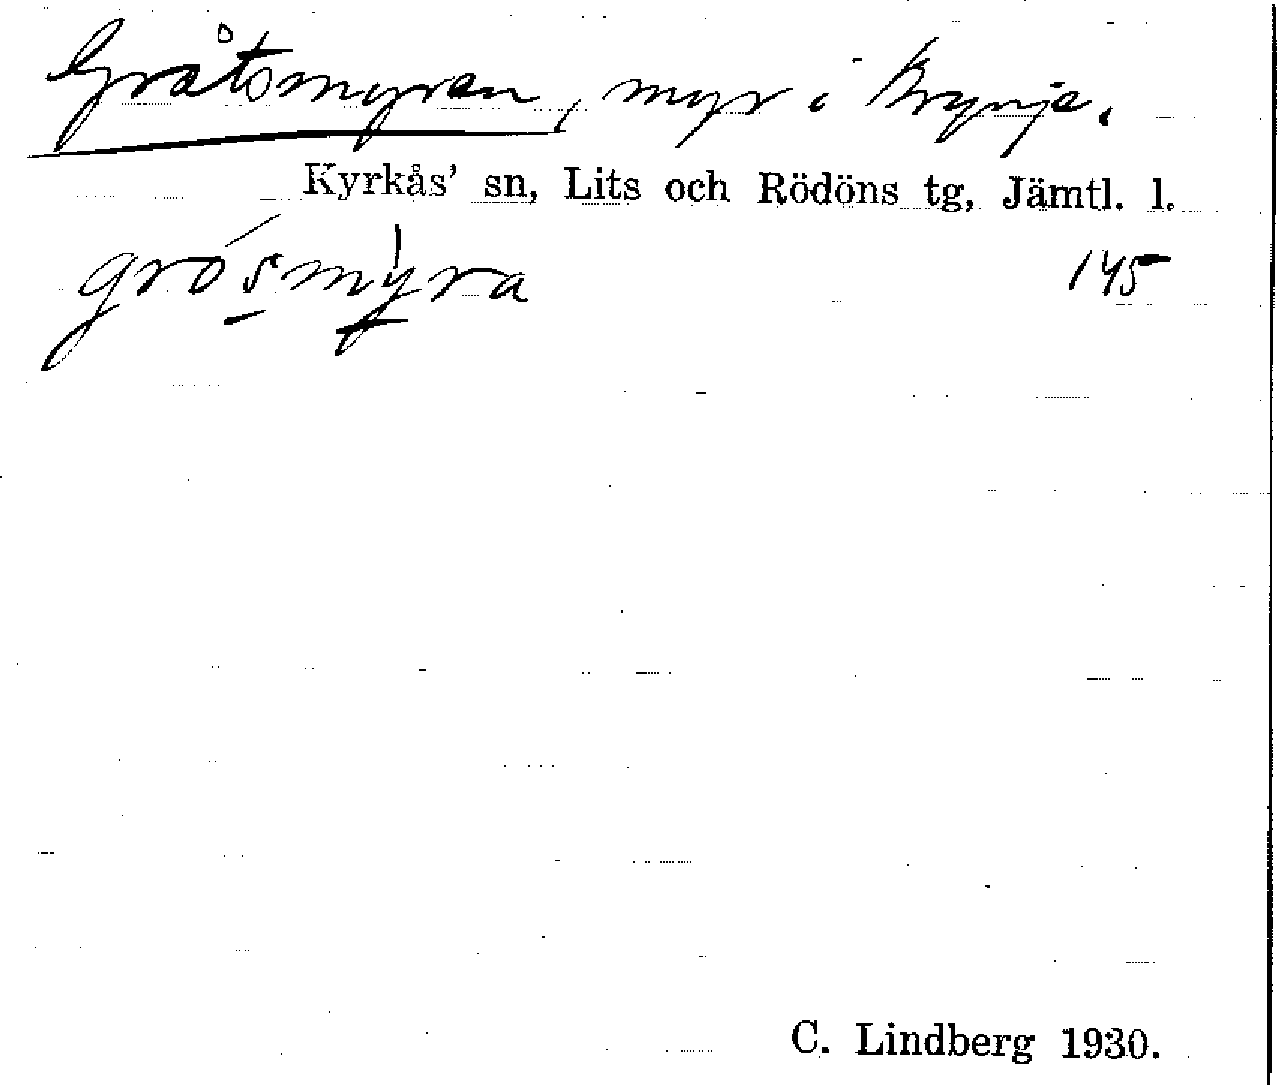 Gråtsmyran, myr i Brynje.
Kyrkås' sn, Lits och Rödöns tg, Jämtl. l.
grósmỳra
145
C. Lindberg 1930.